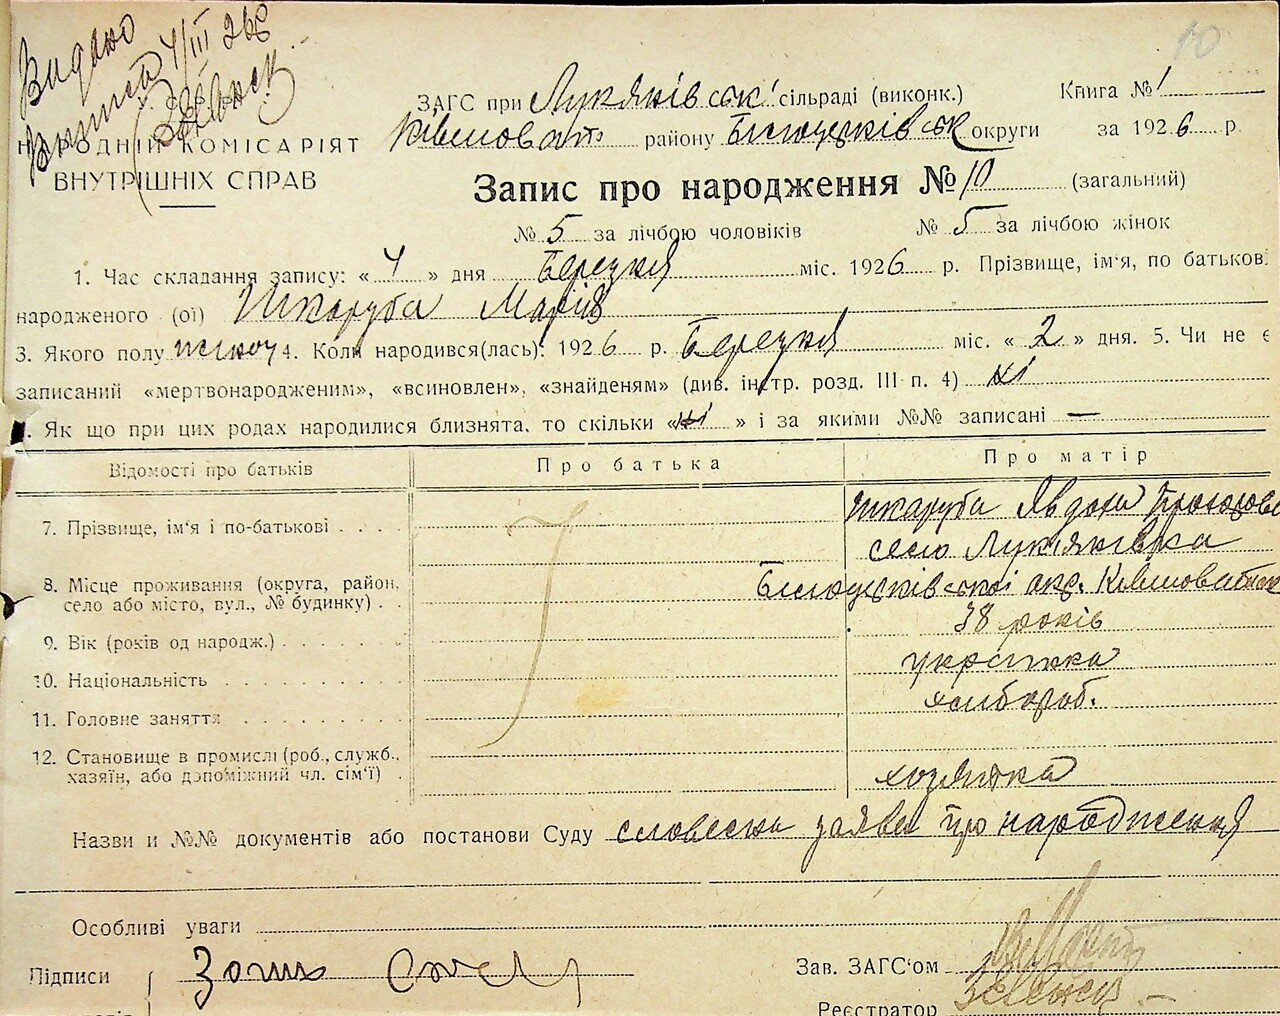 Видано
Виписа 4/III 26
НАРОДНІЙ КОМІСАРІЯТ
ВНУТРІШНІХ СПРАВ
10
ЗАГС при Лукянівській сільраді (виконк.) Книга № 1
району Білоцерківськ округи за 1926 р.
Запис про народження № 10 (загальний)
№ 5 за лічбою чоловіків № 5 за лічбою жінок
1. Час складання запису: « 4 » дня Березня міс. 1926 р. Прізвище, ім'я, по батькові
народженого (ої) Шкаруба Марія
3. Якого полу жіноч 4. Коли народився(лась): 1926 р. Березня міс. « 2 » дня. 5. Чи не є
записаний «мертвонародженим», «всиновлен», «знайденям» (див. інстр. розд. III п. 4) ні
. Як що при цих родах народилися близнята, то скільки « ні » і за якими №№ записані —
Відомості про батьків Про батька Про матір
7. Прізвище, ім'я і по-батькові Шкаруба Явдоха
село Лукянівка
8. Місце проживання (округа, район, село або місто, вул., № будинку) Білоцерківської окр.
9. Вік (років од народж.) 38 років
10. Національність українка
11. Головне заняття хлібороб.
12. Становище в промислі (роб., служб., хазяїн, або допоміжний чл. сім'ї) хозяйка
Назви и №№ документів або постанови Суду словесна заява про народження
Особливі уваги
Підписи
Зав. ЗАГС'ом
Реєстратор